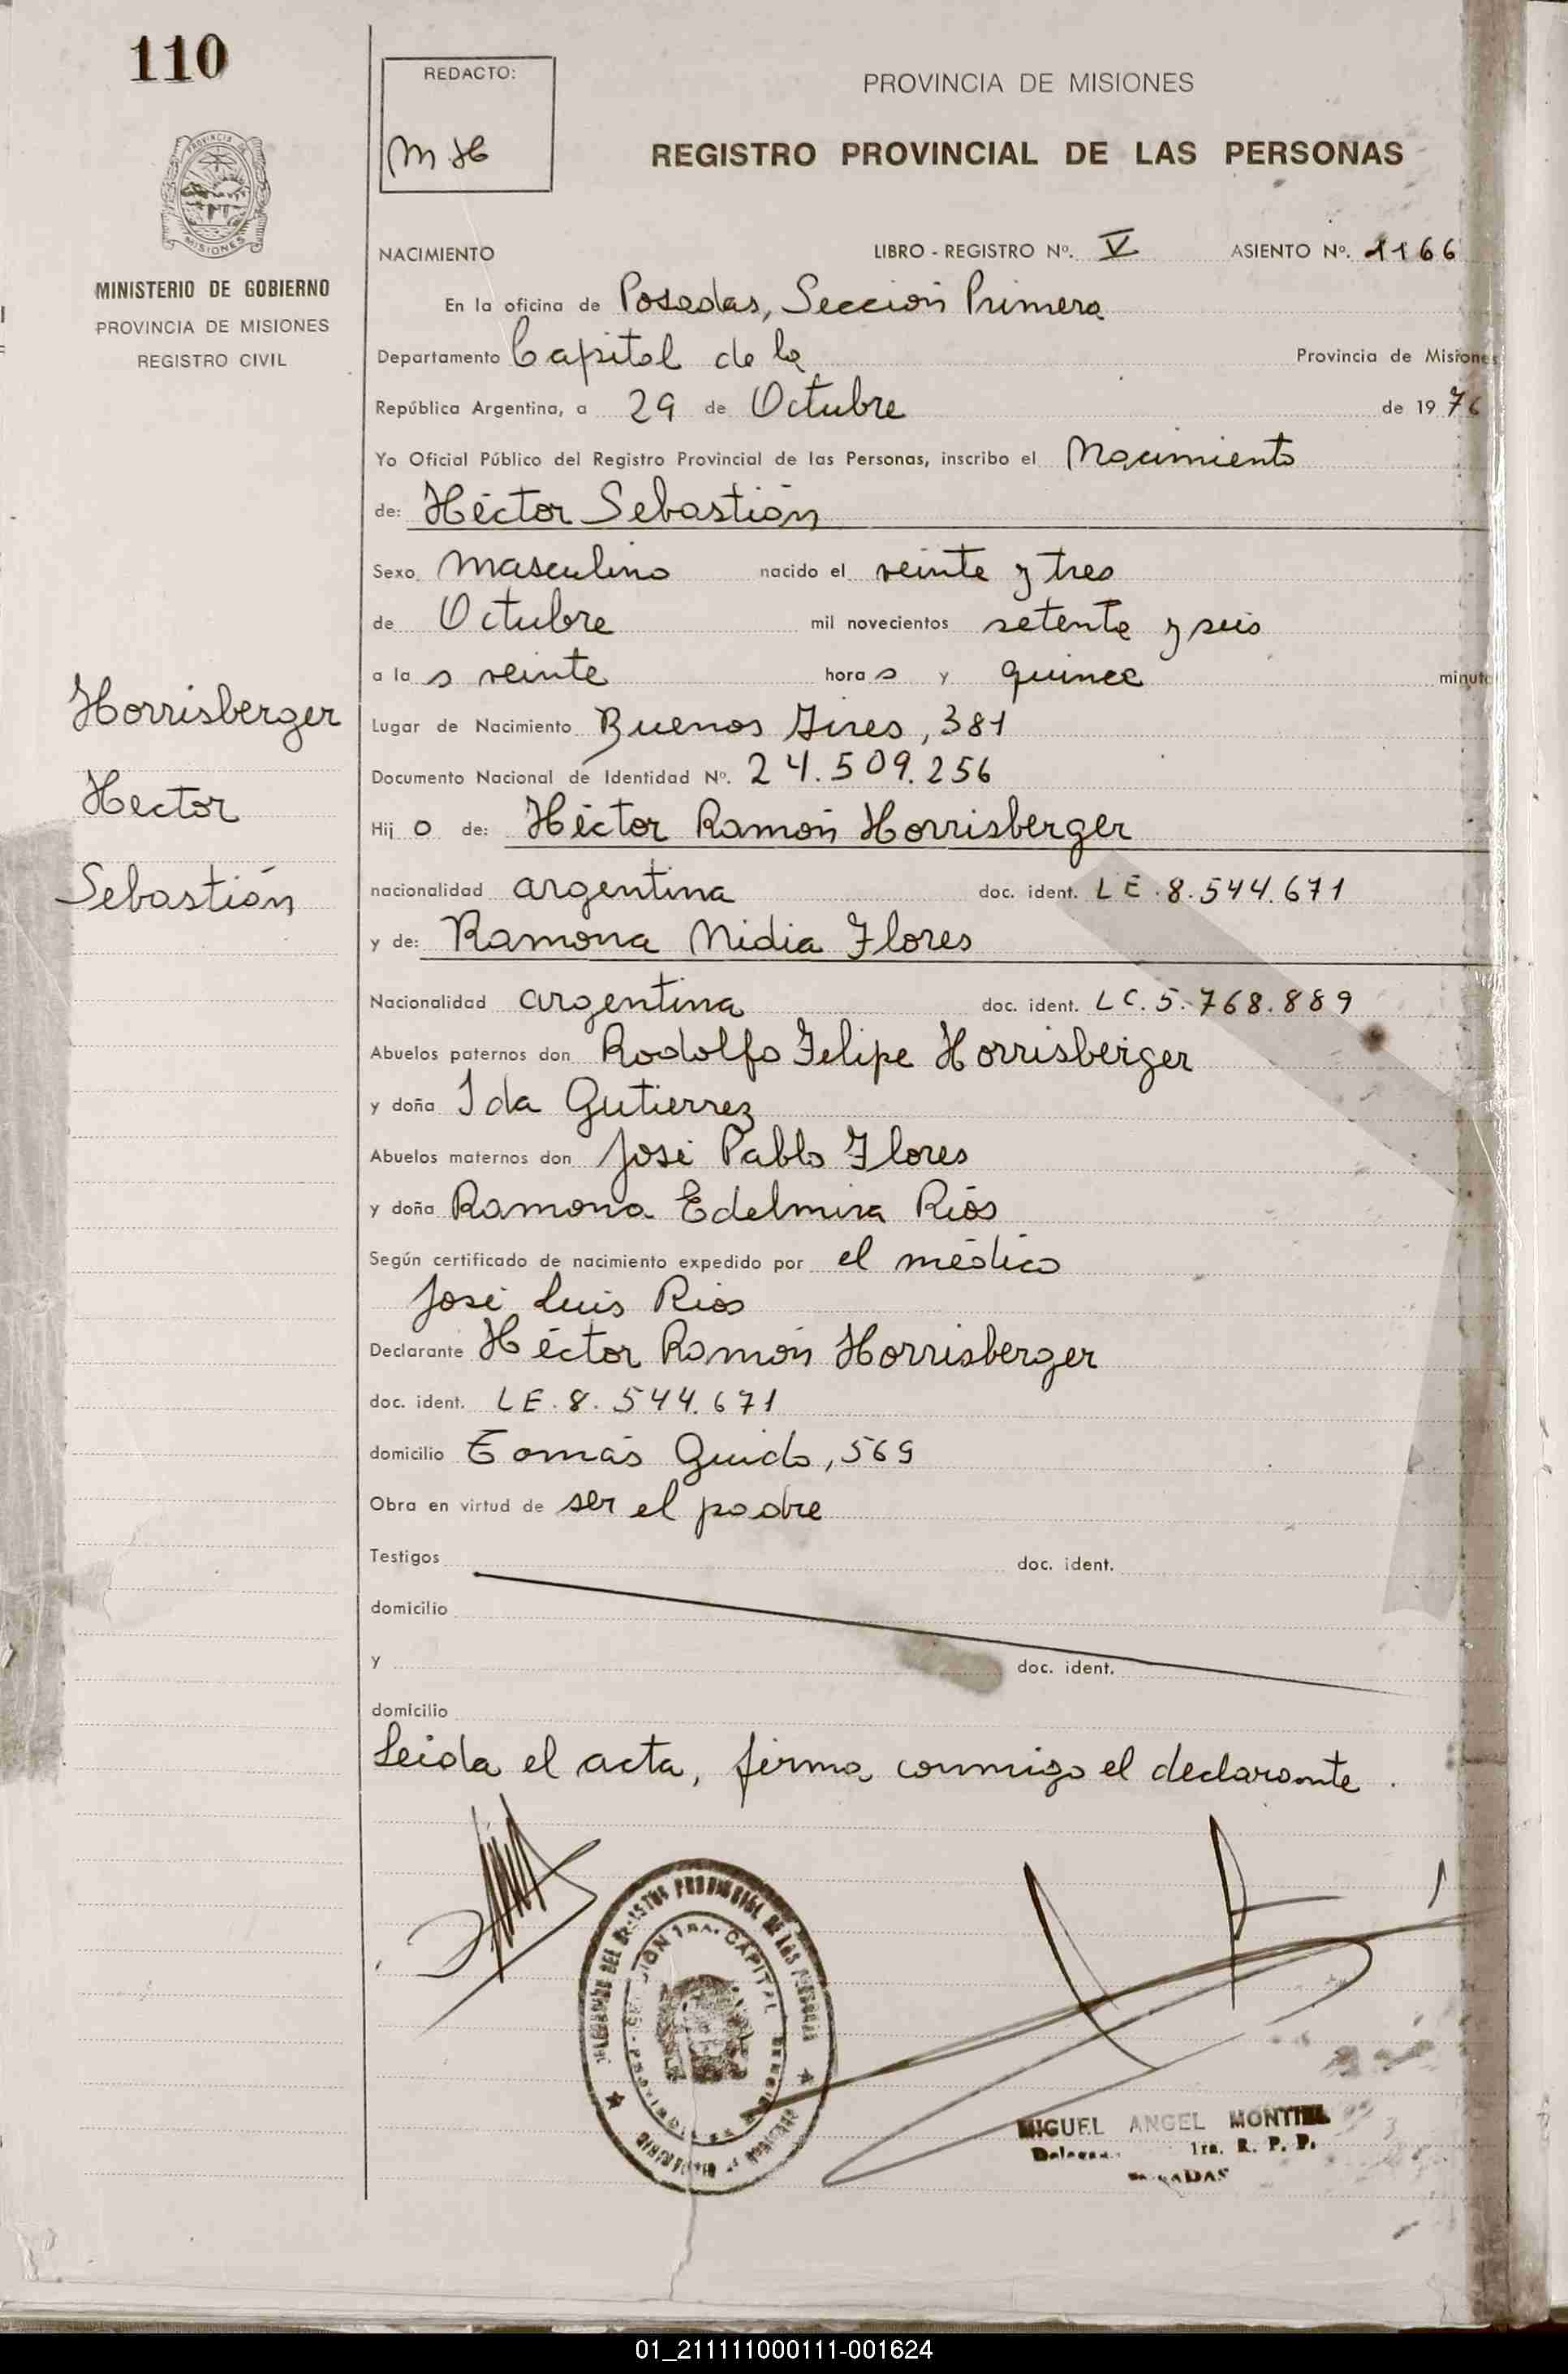 110
REDACTO:
MH
PROVINCIA DE MISIONES
REGISTRO PROVINCIAL DE LAS PERSONAS
PROVINCIA DE
MISIONES
MINISTERIO DE GOBIERNO
PROVINCIA DE MISIONES
REGISTRO CIVIL
NACIMIENTO LIBRO - REGISTRO Nº. V ASIENTO Nº. 1166
En la oficina de Posadas, Sección Primera
Departamento Capital de la Provincia de Misiones
República Argentina, a 29 de Octubre de 1976
Yo Oficial Público del Registro Provincial de las Personas, inscribo el Nacimiento
de: Héctor Sebastián
Sexo masculino nacido el veinte y tres
de Octubre mil novecientos setenta y seis
a las veinte horas y quince minuto
Horrisberger
Hector
Sebastián
Lugar de Nacimiento Buenos Aires, 381
Documento Nacional de Identidad Nº. 24.509.256
Hijo de: Héctor Ramón Horrisberger
nacionalidad argentina doc. ident. LE.8.544.671
y de: Ramona Nidia Flores
Nacionalidad argentina doc. ident. LC.5.768.889
Abuelos paternos don Rodolfo Felipe Horrisberger
y doña Ida Gutierrez
Abuelos maternos don José Pablo Flores
y doña Ramona Edelmira Ríos
Según certificado de nacimiento expedido por el médico
José Luis Rios
Declarante Héctor Ramón Horrisberger
doc. ident. LE.8.544.671
domicilio Tomás Guido, 569
Obra en virtud de ser el padre
Testigos doc. ident.
domicilio
y doc. ident.
domicilio
Leida el acta, firma conmigo el declarante.
DEL PROVINCIAL DE LAS
1RA. CAPITAL
MIGUEL ANGEL MONTIEL
1ra. R. P. P.
01_211111000111-001624